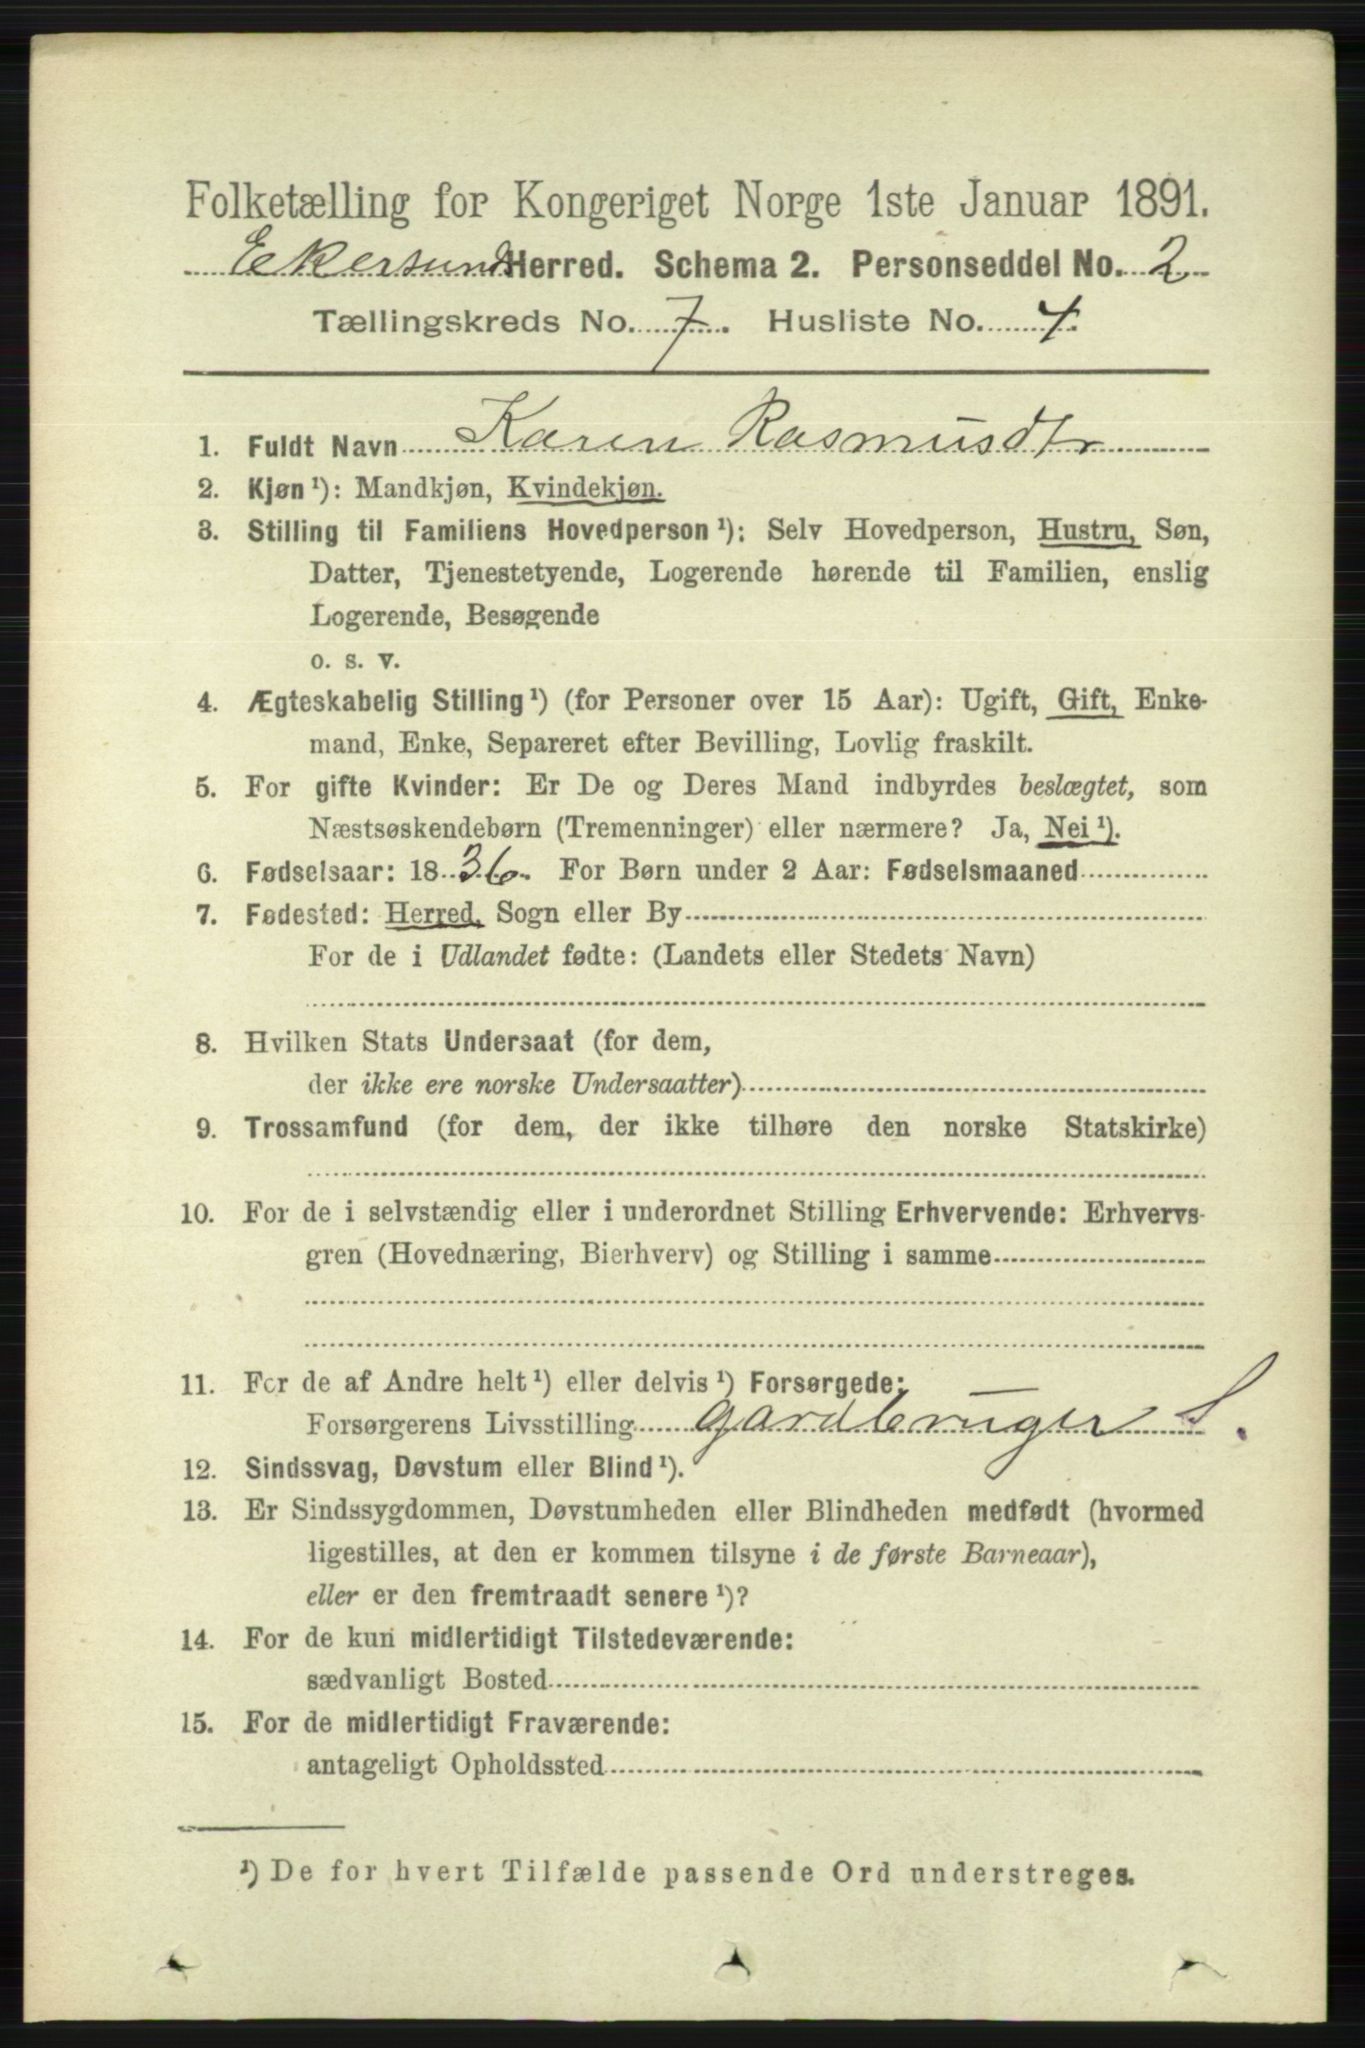 Folketælling for Kongeriget Norge 1ste Januar 1891.
Ekersund Herred. Schema 2. Personseddel No. 2
Tællingskreds No. 7. Husliste No. 4.
1. Fuldt Navn Karen Rasmusdtr
2. Kjøn ¹): Mandkjøn, Kvindekjøn.
3. Stilling til Familiens Hovedperson ¹): Selv Hovedperson, Hustru, Søn,
Datter, Tjenestetyende, Logerende hørende til Familien, enslig
Logerende, Besøgende
o. s. v.
4. Ægteskabelig Stilling ¹) (for Personer over 15 Aar): Ugift, Gift, Enke-
mand, Enke, Separeret efter Bevilling, Lovlig fraskilt.
5. For gifte Kvinder: Er De og Deres Mand indbyrdes beslægtet, som
Næstsøskendebørn (Tremenninger) eller nærmere? Ja, Nei ¹).
6. Fødselsaar: 1836. For Børn under 2 Aar: Fødselsmaaned
7. Fødested: Herred, Sogn eller By
For de i Udlandet fødte: (Landets eller Stedets Navn)
8. Hvilken Stats Undersaat (for dem,
der ikke ere norske Undersaatter)
9. Trossamfund (for dem, der ikke tilhøre den norske Statskirke)
10. For de i selvstændig eller i underordnet Stilling Erhvervende: Erhvervs-
gren (Hovednæring, Bierhverv) og Stilling i samme
11. For de af Andre helt ¹) eller delvis ¹) Forsørgede:
Forsørgerens Livsstilling gardbruger S.
12. Sindssvag, Døvstum eller Blind ¹).
13. Er Sindssygdommen, Døvstumheden eller Blindheden medfødt (hvormed
ligestilles, at den er kommen tilsyne i de første Barneaar),
eller er den fremtraadt senere ¹)?
14. For de kun midlertidigt Tilstedeværende:
sædvanligt Bosted
15. For de midlertidigt Fraværende:
antageligt Opholdssted
¹) De for hvert Tilfælde passende Ord understreges.